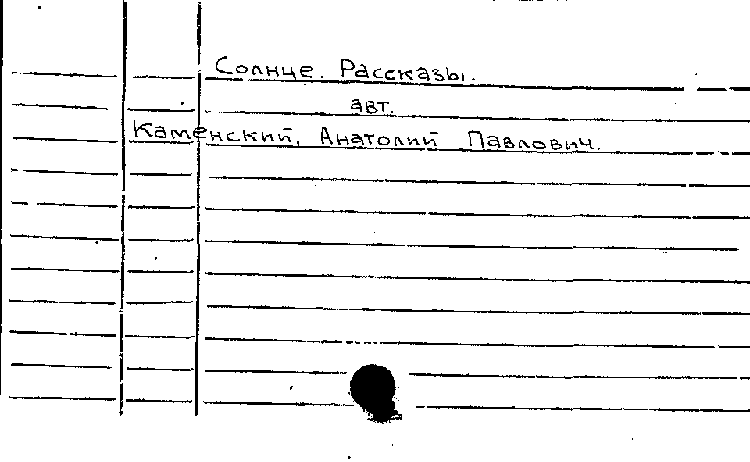 Солнце. Рассказы.
авт.
Каменский, Анатолий Павлович.